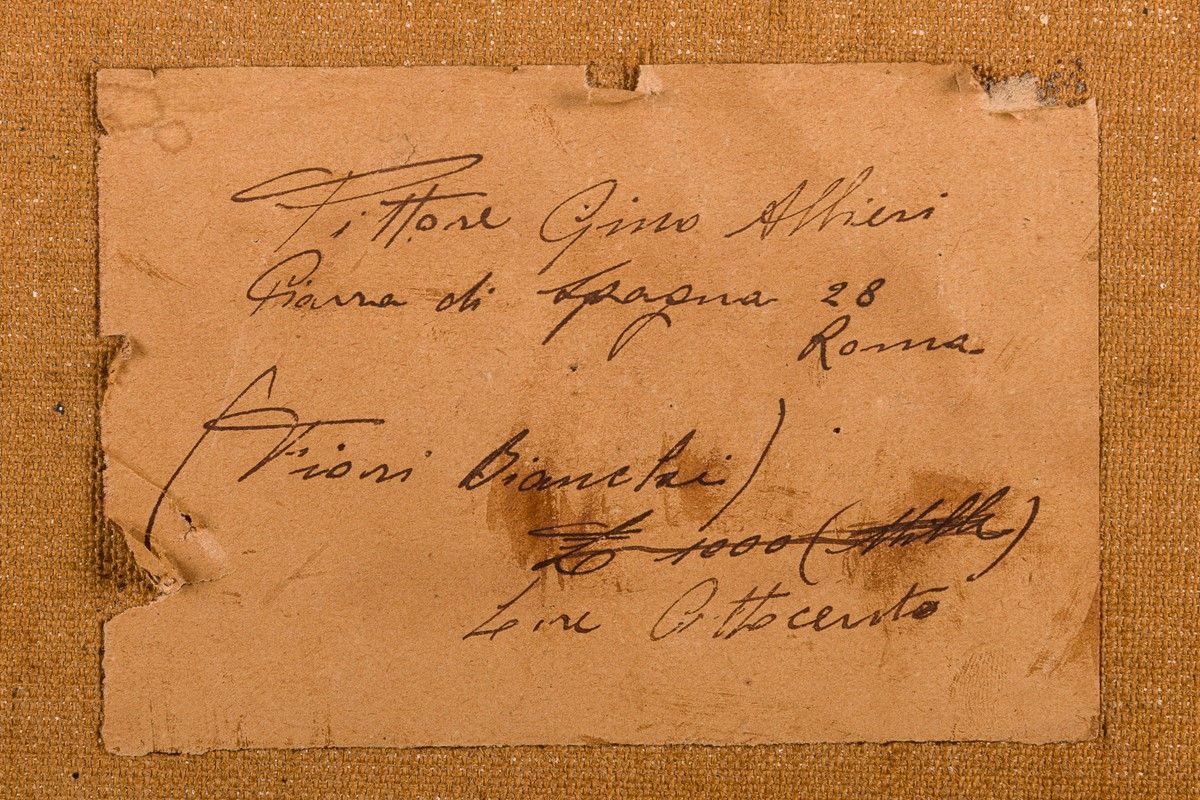 Pittore Gino Albieri
Piazza di Spagna 28
Roma
(Fiori Bianchi)
£ 1000 (Mille)
Lire Ottocento